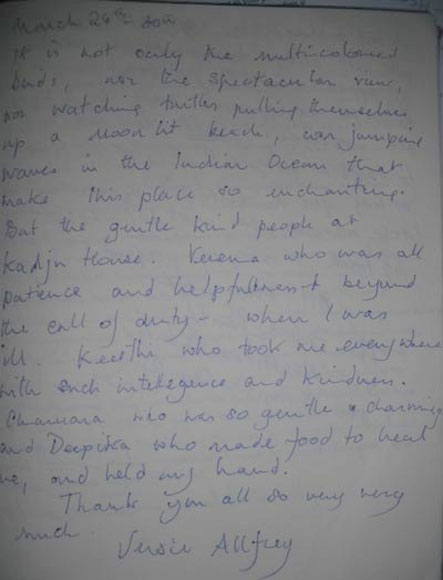 March 24th 30th
It is not only the multicoloured
birds, nor the spectacular view,
nor watching turtles pulling themselves
up a moon lit beach, nor jumping
waves in the Indian Ocean that
make this place so enchanting.
But the gentle kind people at
Kadju House. who was all
patience and helpfulness beyond
the call of duty - when I was
ill. Keerthi who took me everywhere
with such intelegence and kindness.
Chamara who was so gentle & charming
and Deepika who made food to heal
me, and held my hand.
Thank you all so very very
much.
Allfrey